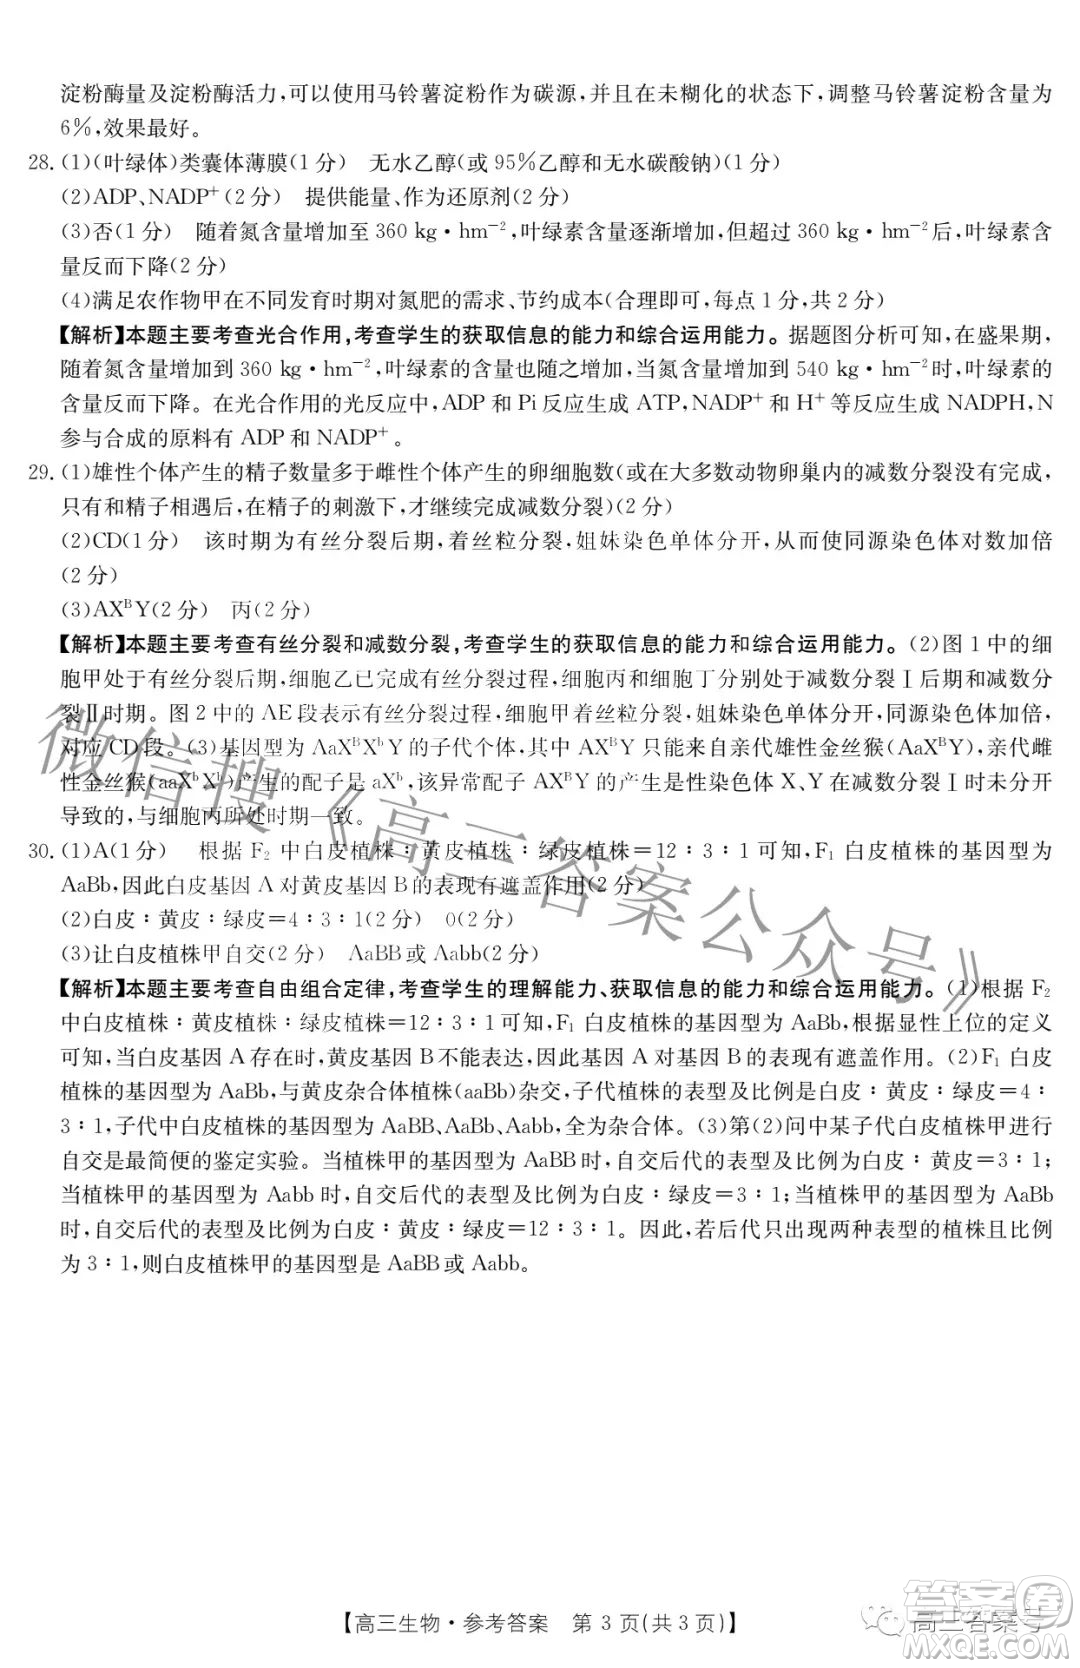 淀粉酶量及淀粉酶活力,可以使用马铃薯淀粉作为碳源,并且在未糊化的状态下,调整马铃薯淀粉含量为
6%,效果最好。
28.(1)(叶绿体)类囊体薄膜(1分)　无水乙醇(或95%乙醇和无水碳酸钠)(1分)
(2)ADP、NADP⁺(2分)　提供能量、作为还原剂(2分)
(3)否(1分)　随着氮含量增加至360 kg·hm⁻²,叶绿素含量逐渐增加,但超过360 kg·hm⁻²后,叶绿素含
量反而下降(2分)
(4)满足农作物甲在不同发育时期对氮肥的需求、节约成本(合理即可,每点1分,共2分)
【解析】本题主要考查光合作用,考查学生的获取信息的能力和综合运用能力。据题图分析可知,在盛果期,
随着氮含量增加到360 kg·hm⁻²,叶绿素的含量也随之增加,当氮含量增加到540 kg·hm⁻²时,叶绿素的
含量反而下降。在光合作用的光反应中,ADP和Pi反应生成ATP,NADP⁺和H⁺等反应生成NADPH,N
参与合成的原料有ADP和NADP⁺。
29.(1)雄性个体产生的精子数量多于雌性个体产生的卵细胞数(或在大多数动物卵巢内的减数分裂没有完成,
只有和精子相遇后,在精子的刺激下,才继续完成减数分裂)(2分)
(2)CD(1分)　该时期为有丝分裂后期,着丝粒分裂,姐妹染色单体分开,从而使同源染色体对数加倍
(2分)
(3)AXᴮY(2分)　丙(2分)
【解析】本题主要考查有丝分裂和减数分裂,考查学生的获取信息的能力和综合运用能力。(2)图1中的细
胞甲处于有丝分裂后期,细胞乙已完成有丝分裂过程,细胞丙和细胞丁分别处于减数分裂Ⅰ后期和减数分
裂Ⅱ时期。图2中的AE段表示有丝分裂过程,细胞甲着丝粒分裂,姐妹染色单体分开,同源染色体加倍,
对应CD段。(3)基因型为AaXᴮXᵇY的子代个体,其中AXᴮY只能来自亲代雄性金丝猴(AaXᴮY),亲代雌
性金丝猴(aaXᵇXᵇ)产生的配子是aXᵇ,该异常配子AXᴮY的产生是性染色体X、Y在减数分裂Ⅰ时未分开
导致的,与细胞丙所处时期一致。
30.(1)A(1分)　根据F₂中白皮植株∶黄皮植株∶绿皮植株=12∶3∶1可知,F₁白皮植株的基因型为
AaBb,因此白皮基因A对黄皮基因B的表现有遮盖作用(2分)
(2)白皮∶黄皮∶绿皮=4∶3∶1(2分)　0(2分)
(3)让白皮植株甲自交(2分)　AaBB或Aabb(2分)
【解析】本题主要考查自由组合定律,考查学生的理解能力、获取信息的能力和综合运用能力。(1)根据F₂
中白皮植株∶黄皮植株∶绿皮植株=12∶3∶1可知,F₁白皮植株的基因型为AaBb,根据显性上位的定义
可知,当白皮基因A存在时,黄皮基因B不能表达,因此基因A对基因B的表现有遮盖作用。(2)F₁白皮
植株的基因型为AaBb,与黄皮杂合体植株(aaBb)杂交,子代植株的表型及比例是白皮∶黄皮∶绿皮=4∶
3∶1,子代中白皮植株的基因型为AaBB、AaBb、Aabb,全为杂合体。(3)第(2)问中某子代白皮植株甲进行
自交是最简便的鉴定实验。当植株甲的基因型为AaBB时,自交后代的表型及比例为白皮∶黄皮=3∶1;
当植株甲的基因型为Aabb时,自交后代的表型及比例为白皮∶绿皮=3∶1;当植株甲的基因型为AaBb
时,自交后代的表型及比例为白皮∶黄皮∶绿皮=12∶3∶1。因此,若后代只出现两种表型的植株且比例
为3∶1,则白皮植株甲的基因型是AaBB或Aabb。
微信搜《高三答案公众号》
【高三生物·参考答案　第3页(共3页)】
高三答案号
答案圈
MXQE.COM